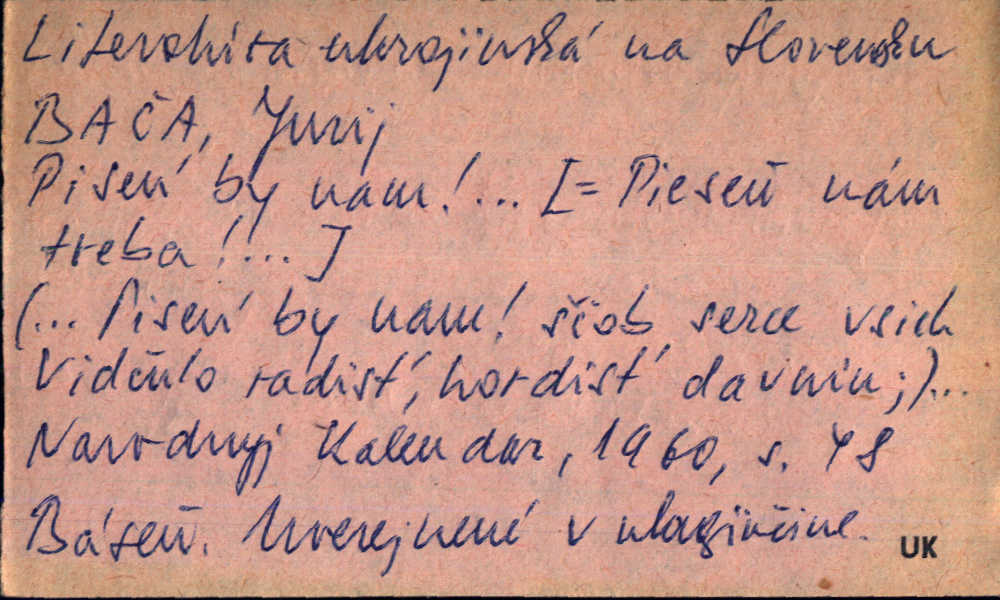 Literatúra ukrajinská na Slovensku
BAČA, Jurij
Piseń by nam!... [= Pieseň nám
treba!!...]
(... Piseń by nam! ščob serce vsich
Vidčulo radisť, hordisť davniu;)...
Narodnyj Kalendar, 1960, s. 48
Báseň. Uverejnené v ukrajinčine.
UK